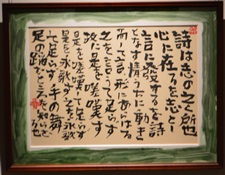 詩は志の之く所也
心に在るを志と
言に發するを詩
となす情うちに動き
而して言に形あらはる
之を言うて足らず
故に是を嗟嘆す
是を嗟嘆して足らず
是を永歌す
て足らず手の舞
足の踏